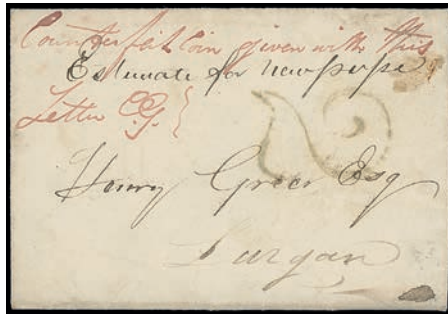 Counterfeit Coin given with this
Estimate for
Letter
2
Henry Greer Esq
Lurgan